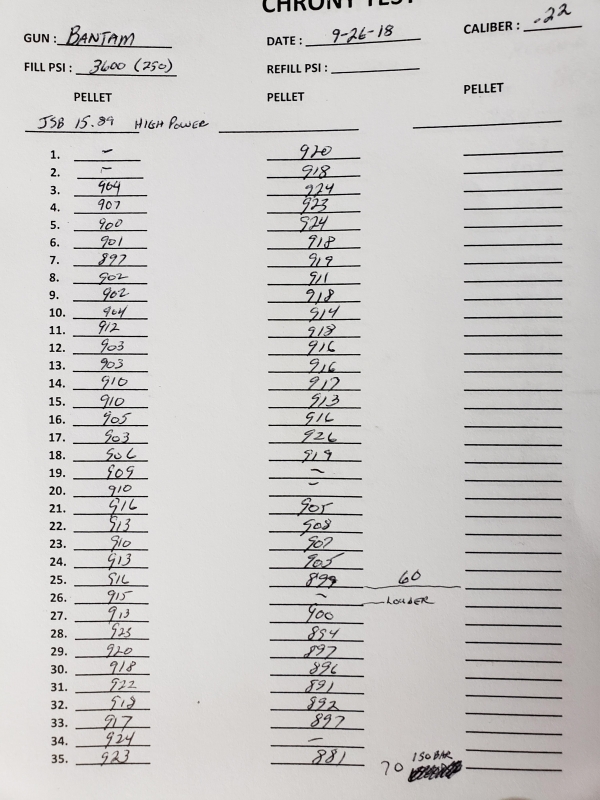 CHRONY TEST
GUN : BANTAM DATE : 9-26-18 CALIBER : .22
FILL PSI : 3600 (250) REFILL PSI :
PELLET PELLET PELLET
JSB 15.89 HIGH POWER
1. - 920
2. - 918
3. 904 924
4. 907 923
5. 900 924
6. 901 918
7. 897 919
8. 902 911
9. 902 918
10. 904 914
11. 912 918
12. 903 916
13. 903 916
14. 910 917
15. 910 913
16. 905 916
17. 903 926
18. 906 919
19. 909 -
20. 910 -
21. 916 905
22. 913 908
23. 910 907
24. 913 905
25. 916 899 60
26. 915 - LOUDER
27. 913 900
28. 923 894
29. 920 897
30. 918 896
31. 922 891
32. 918 892
33. 917 897
34. 924 -
35. 923 881 70 150 BAR